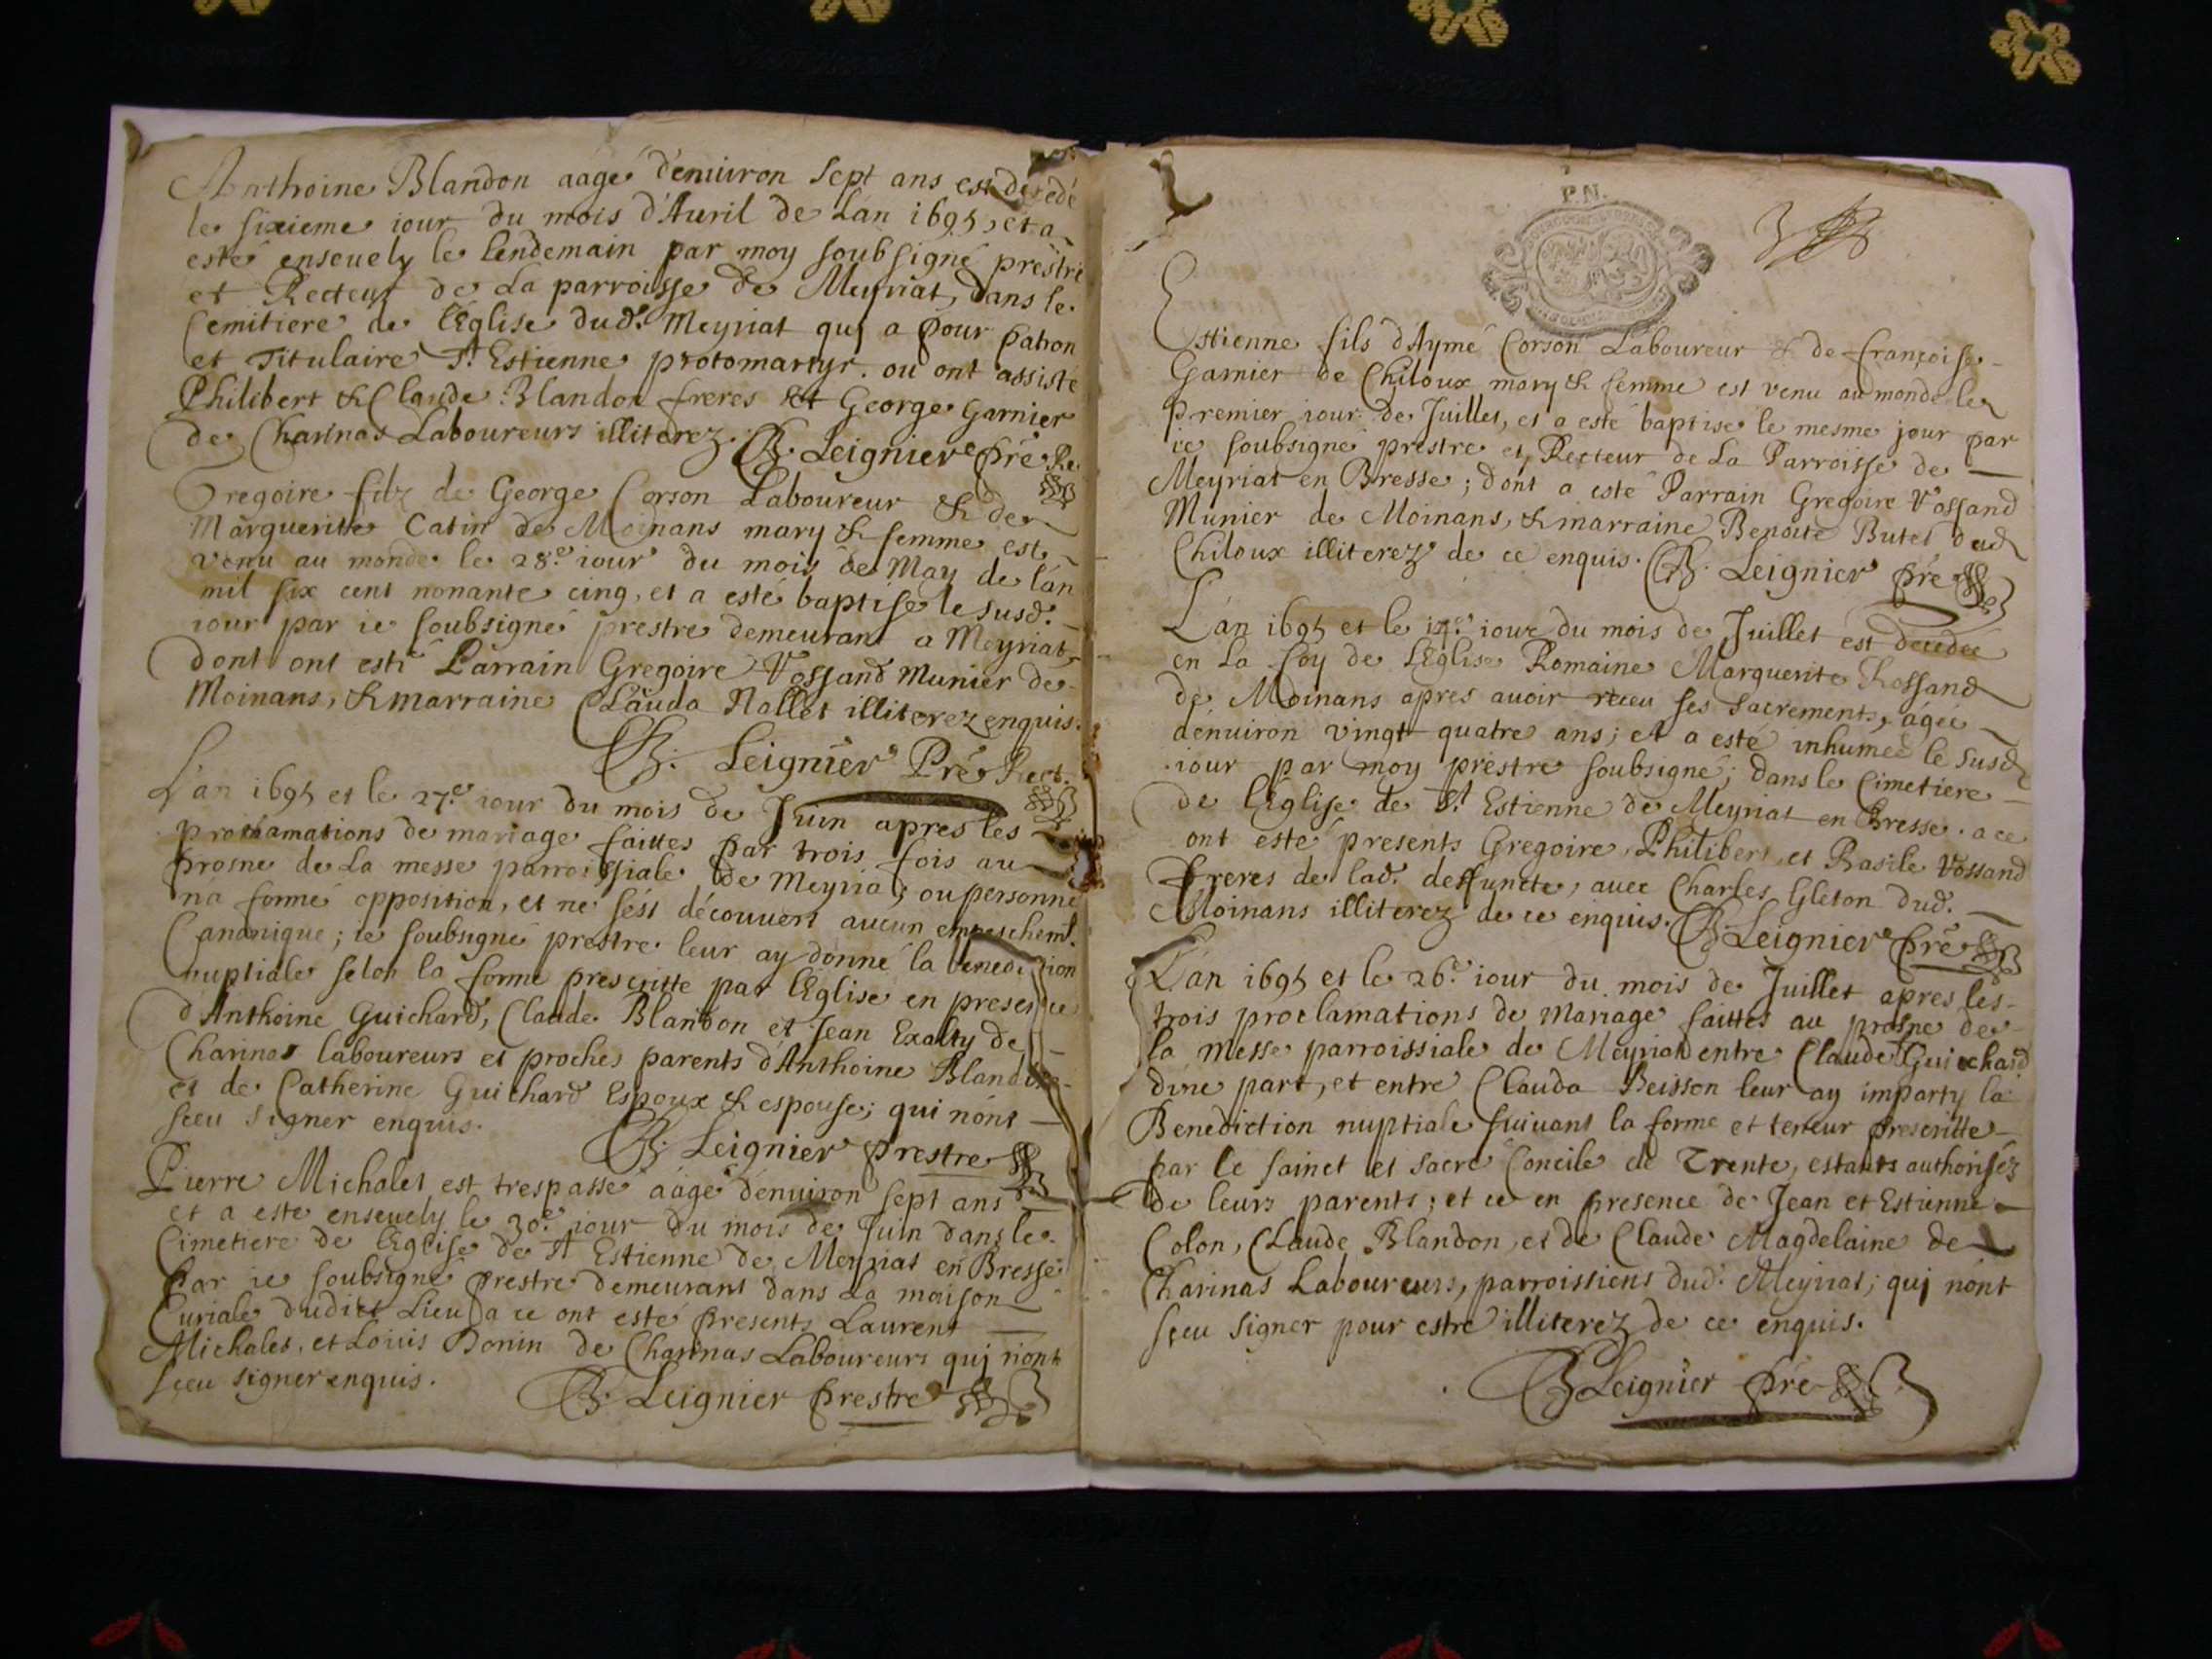 Anthoine Blandon aagé d'enuiron sept ans est decedé
le sixieme iour du mois d'Auril de L'an 1695, et a
esté enseuely le lendemain par moy soubsigné prestre
et Recteur de La parroisse de Meyriat, dans le
Cemitiere de l'Eglise dud. Meyriat quj a pour patron
et Titulaire St. Estienne protomartyr. ou ont assisté
Philibert & Claude Blandon freres et George Garnier
de Charinas Laboureurs illiterez. Leignier pré Re
Gregoire filz de George Corson Laboureur & de
Margueritte Catin de Moinans mary & femme est
venu au monde le 28e. iour du mois de May de l'an
mil six cent nonante cinq, et a esté baptisé le susd.
iour par ie soubsigné prestre demeurant a Meyriat
dont ont esté Parrain Gregoire Vossand Munier de
Moinans, & marraine Clauda Nallet illiterez enquis.
Leignier Pré Rect.
L'an 1695 et le 27e. iour du mois de Juin apres les
proclamations de mariage faittes par trois fois au
prosne de La messe parroissiale de Meyriat, ou personne
n'a formé opposition, et ne s'est découuert aucun empeschemt.
Canonique; ie soubsigné prestre leur ay donné la benediction
nuptiale selon la forme prescritte par l'Eglise en presence
d'Anthoine Guichard, Claude Blandon et Jean Exalty de
Charinas laboureurs et proches parents d'Anthoine Blandon
et de Catherine Guichard Espoux & espouse; qui n'ont
sceu signer enquis. Leignier prestre
Pierre Michalet est trespassé aagé d'enuiron sept ans
et a esté enseuely le 30e. iour du mois de Juin dans le
Cimetiere de l'Eglise de St Estienne de Meyriat en Bresse
par ie soubsigné prestre demeurant dans La maison
Curiale dudict Lieu a ce ont esté presents Laurent
Michalet, et Louis Bonin de Charinas Laboureurs quj n'ont
sçeu signer enquis. Leignier prestre
P.N.
Estienne fils d'Aymé Corson Laboureur & de françoise
Garnier de Chiloux mary & femme est venu au monde le
premier iour de Juillet, et a esté baptisé le mesme jour par
ie soubsigné prestre et Recteur de La Parroisse de
Meyriat en Bresse; dont a esté Parrain Gregoire Vossand
Munier de Moinans, & marraine Benoite Butet dud
Chiloux illiterez de ce enquis. Leignier pré
L'an 1695 et le iour du mois de Juillet est decedée
en La foy de L'Eglise Romaine Marguerite Vossand
de Moinans apres auoir receu ses Sacrements, agée
d'enuiron vingt quatre ans; et a esté inhumée le susd
iour par moy prestre soubsigné; dans le Cimetiere
de l'Eglise de St Estienne de Meyriat en Bresse. a ce
ont esté presents Gregoire, Philibert, et Basile Vossand
freres de lad. deffuncte, auec Charles Gleton dud.
Moinans illiterez de ce enquis. Leignier pré
L'an 1695 et le 26e. iour du mois de Juillet apres les
trois proclamations de Mariage faittes au prosne de
la Messe parroissiale de Meyriat entre Claude Guichard
d'une part, et entre Clauda Beisson leur ay imparty la
Benediction nuptiale suiuant la forme et teneur prescritte
par le sainct et sacré Concile de Trente, estants authorisez
de leurs parents; et ce en presence de Jean et Estienne
Colon, Claude Blandon, et de Claude Magdelaine de
Charinas Laboureurs, parroissiens dud. Meyriat; quj n'ont
sçeu signer pour estre illiterez de ce enquis.
Leignier pré